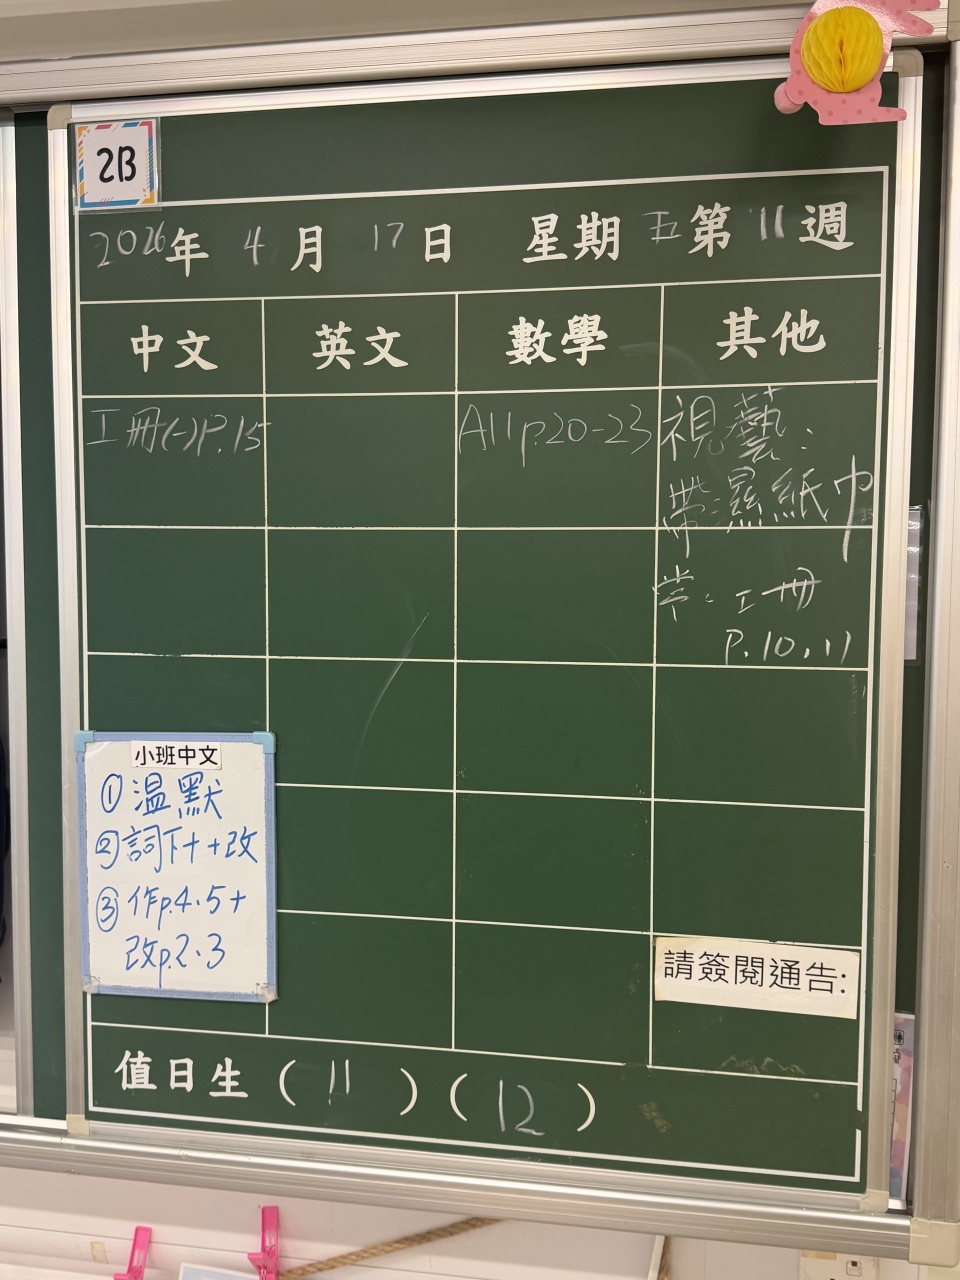 2B
2026年 4月 17日 星期五第11週
中文 英文 數學 其他
工冊(一)P.15
A11 p.20-23
視藝:
帶濕紙巾
常:工冊
P.10,11
小班中文
①溫默
②詞下++改
③作p.4、5+
改p.2、3
請簽閱通告:
值日生(11)(12)